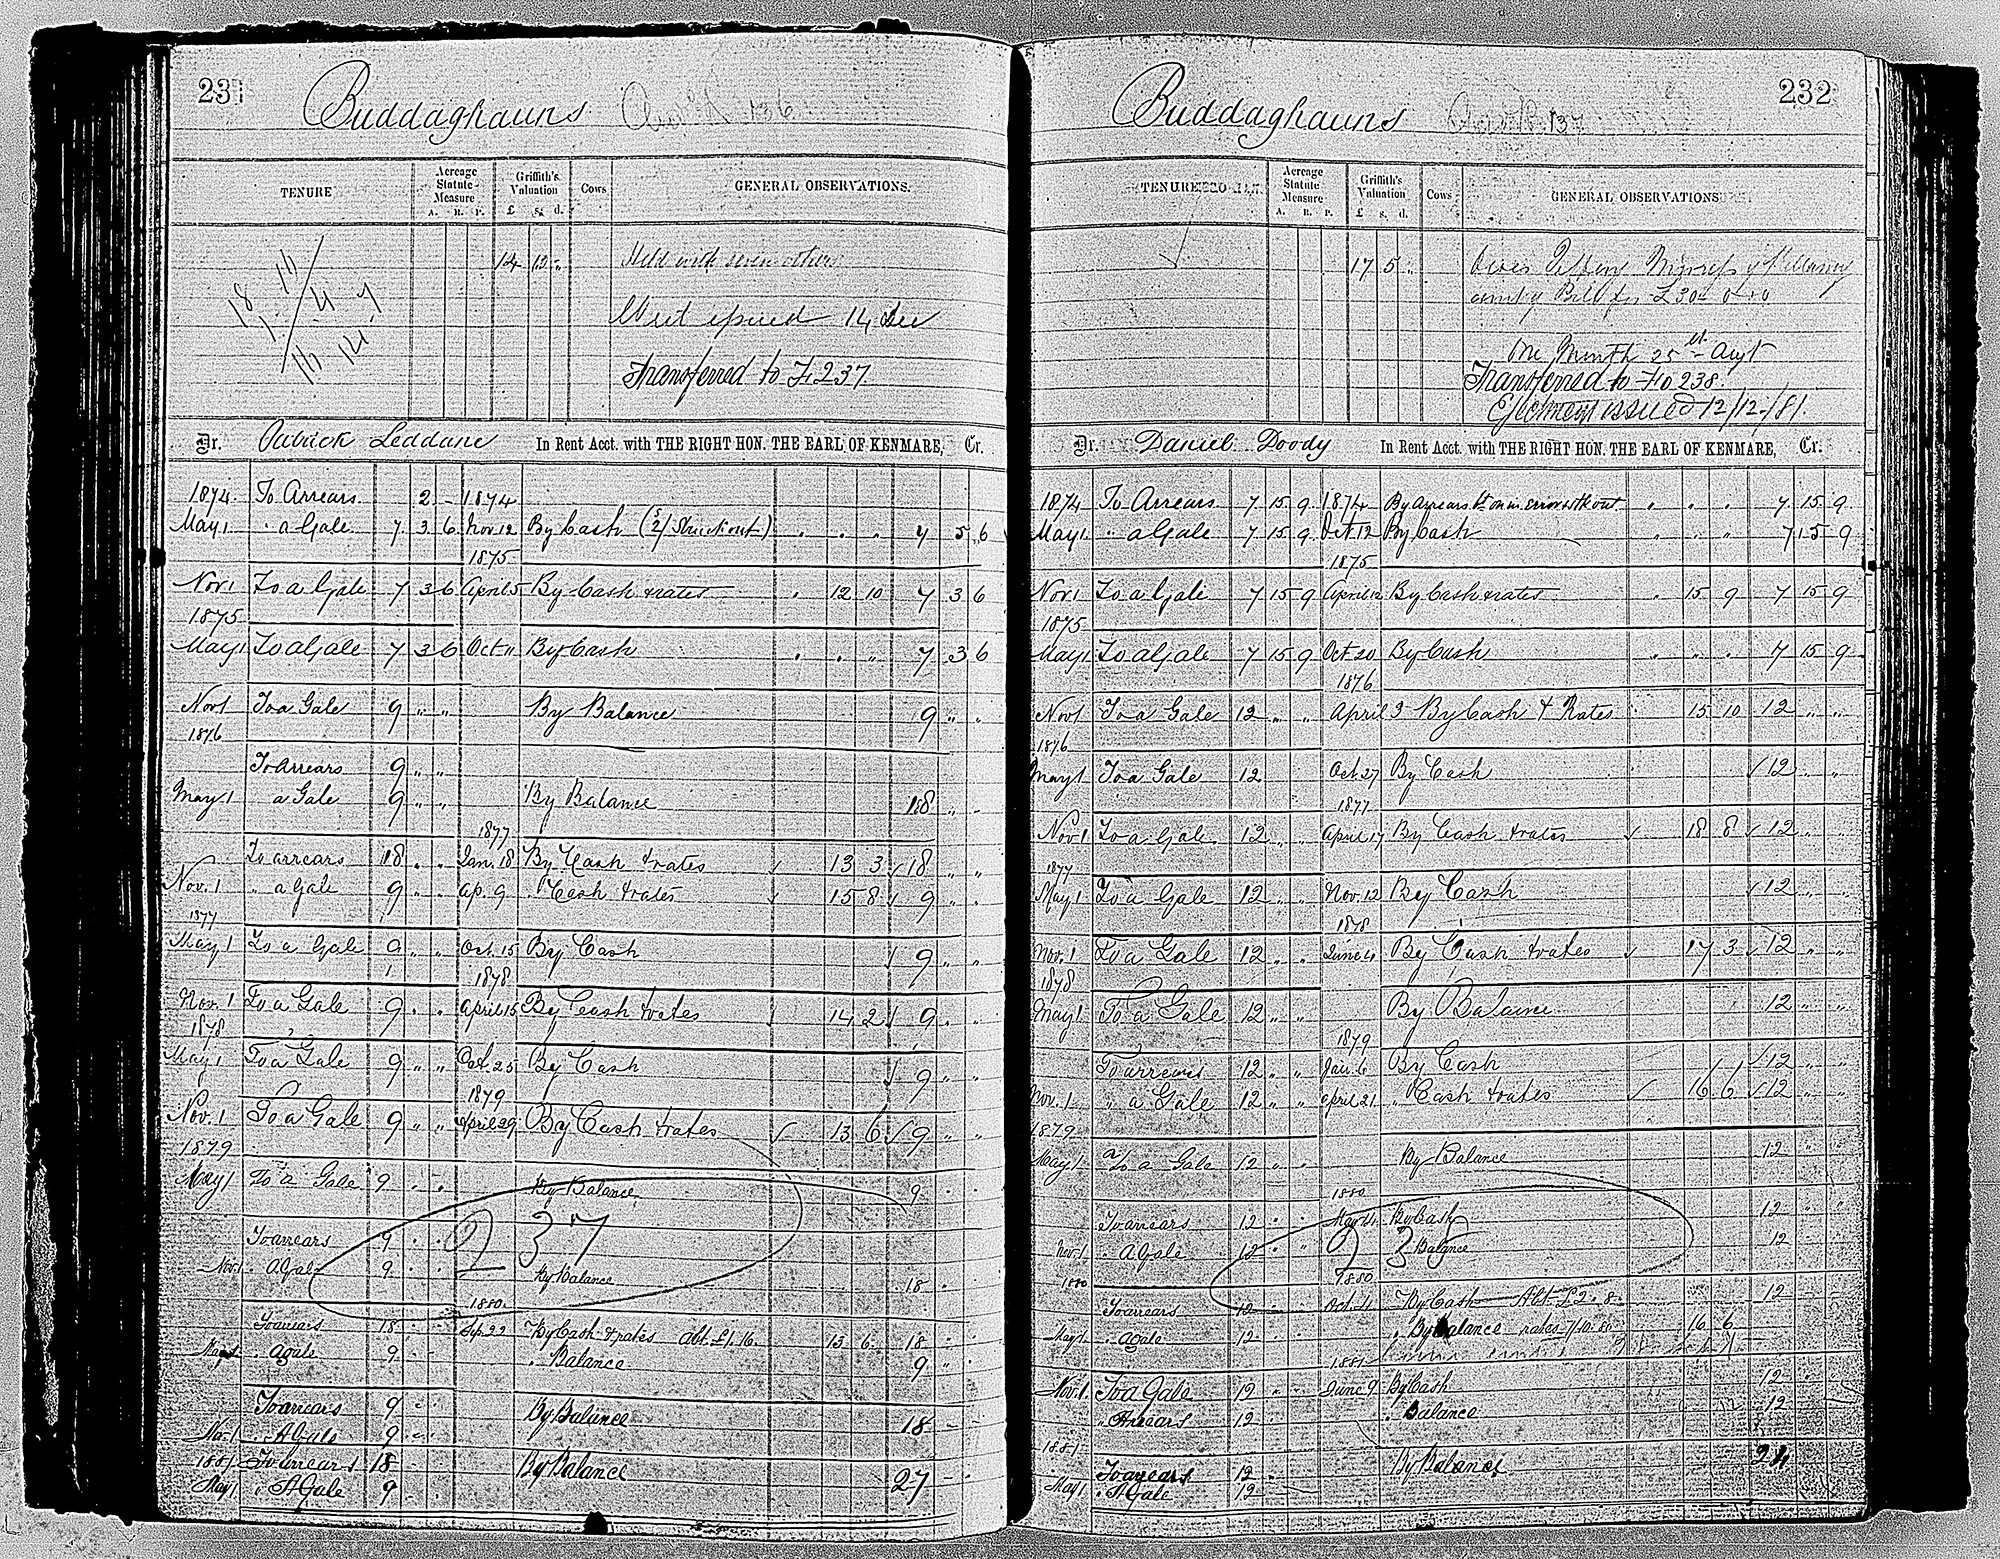 231
Buddaghauns 136
TENURE Acreage Statute Measure A. R. P. Griffith's Valuation £ s. d. Cows GENERAL OBSERVATIONS.
14 13 „ Held with seven others
18 11/
1 4 7
16 14
Writ issued 14 Dec
Transferred to Fo 237
Dr. Patrick Leddane In Rent Acct. with THE RIGHT HON. THE EARL OF KENMARE, Cr.
1874. To Arrears 2 - 1874
May 1 " a Gale 7 3 6 Nov 12 By Cash (2/ Struck out) " " " 7 5 6
1875
Nov 1 To a Gale 7 3 6 April 5 By Cash & rates " 12 10 7 3 6
1875
May 1 To a Gale 7 3 6 Oct 11 By Cash " " " 7 3 6
Nov 1 To a Gale 9 " " By Balance 9 " "
1876
To Arrears 9 " "
May 1 a Gale 9 " " By Balance 18 " "
1877
To arrears 18 " " Jan. 18 By Cash & rates 13 3 18 " "
Nov. 1 " a Gale 9 " " Ap. 9 " Cash & rates 15 8 9 " "
1877
May 1 To a Gale 9 " " Oct. 15 By Cash 9 " "
1878
Nov. 1 To a Gale 9 " " April 15 By Cash & rates 14 2 9 " "
1878
May 1 To a Gale 9 " " Oct. 25 By Cash 9 " "
1879
Nov. 1 To a Gale 9 " " April 29 By Cash & rates 13 6 9 " "
1879
May 1 To a Gale 9 " " By Balance 9 " "
237
To arrears 9 " "
Nov. 1 " A Gale 9 " " By Balance 18 " "
1880
To arrears 18 " " Sep. 22 By Cash & rates abt. £1.16. 13 6 18 " "
May 1 " a gale 9 " " " Balance 9 " "
To arrears 9 " " By Balance 18 - -
Nov. 1 " A Gale 9 " "
1881 To arrears 18 - By Balance 27 - -
May 1 " A Gale 9 - -
232
Buddaghauns 137
TENURE Acreage Statute Measure A. R. P. Griffith's Valuation £ s. d. Cows GENERAL OBSERVATIONS
17 5 " Owes Killarney
amt of Bill for £30
One Month 25th Augt
Transferred to Fo 238.
Ejectment issued 12/12/81.
Dr. Daniel Doody In Rent Acct. with THE RIGHT HON. THE EARL OF KENMARE, Cr.
1874 To Arrears 7 15 9 1874 By arrears bt on in error with out " " " 7 15 9
May 1 " a Gale 7 15 9 Oct. 12 By Cash " " " 7 15 9
1875
Nov. 1 To a Gale 7 15 9 April 12 By Cash & rates " 15 9 7 15 9
1875
May 1 To a Gale 7 15 9 Oct. 20 By Cash " " " 7 15 9
1876
Nov 1 To a Gale 12 " " April 3 By Cash & Rates 15 10 12 " "
1876
May 1 To a Gale 12 Oct. 27 By Cash 12 " "
1877
Nov. 1 To a Gale 12 " " April 17 By Cash & rates 18 8 12 "
1877
May 1 To a Gale 12 " " Nov. 12 By Cash 12 " "
1878
Nov. 1 To a Gale 12 " " June 4 By Cash & rates 17 3 12 " "
1878
May 1 To a Gale 12 " " By Balance 12 " "
1879
To arrears 12 " " Jan. 6 By Cash 12 " "
Nov. 1 " a Gale 12 " " April 21 " Cash & rates 16 6 12 " "
1879
May 1 To a Gale 12 " " By Balance 12 " "
1880
To arrears 12 " " May By Cash 12 " "
Nov. 1 " A Gale 12 " " " Balance 12 " "
23
1880 1880
To arrears 12 " " Oct. 11 By Cash Abt £2.8. 12 " "
May 1 " a gale 12 " " " By Balance rates 16 6
1881
Nov. 1 To a Gale 12 " " June 9 By Cash 12 " "
" Arrears 12 " " " Balance 12 " "
1881
To arrears 12 " By Balance 24
May 1 " A Gale 12 "